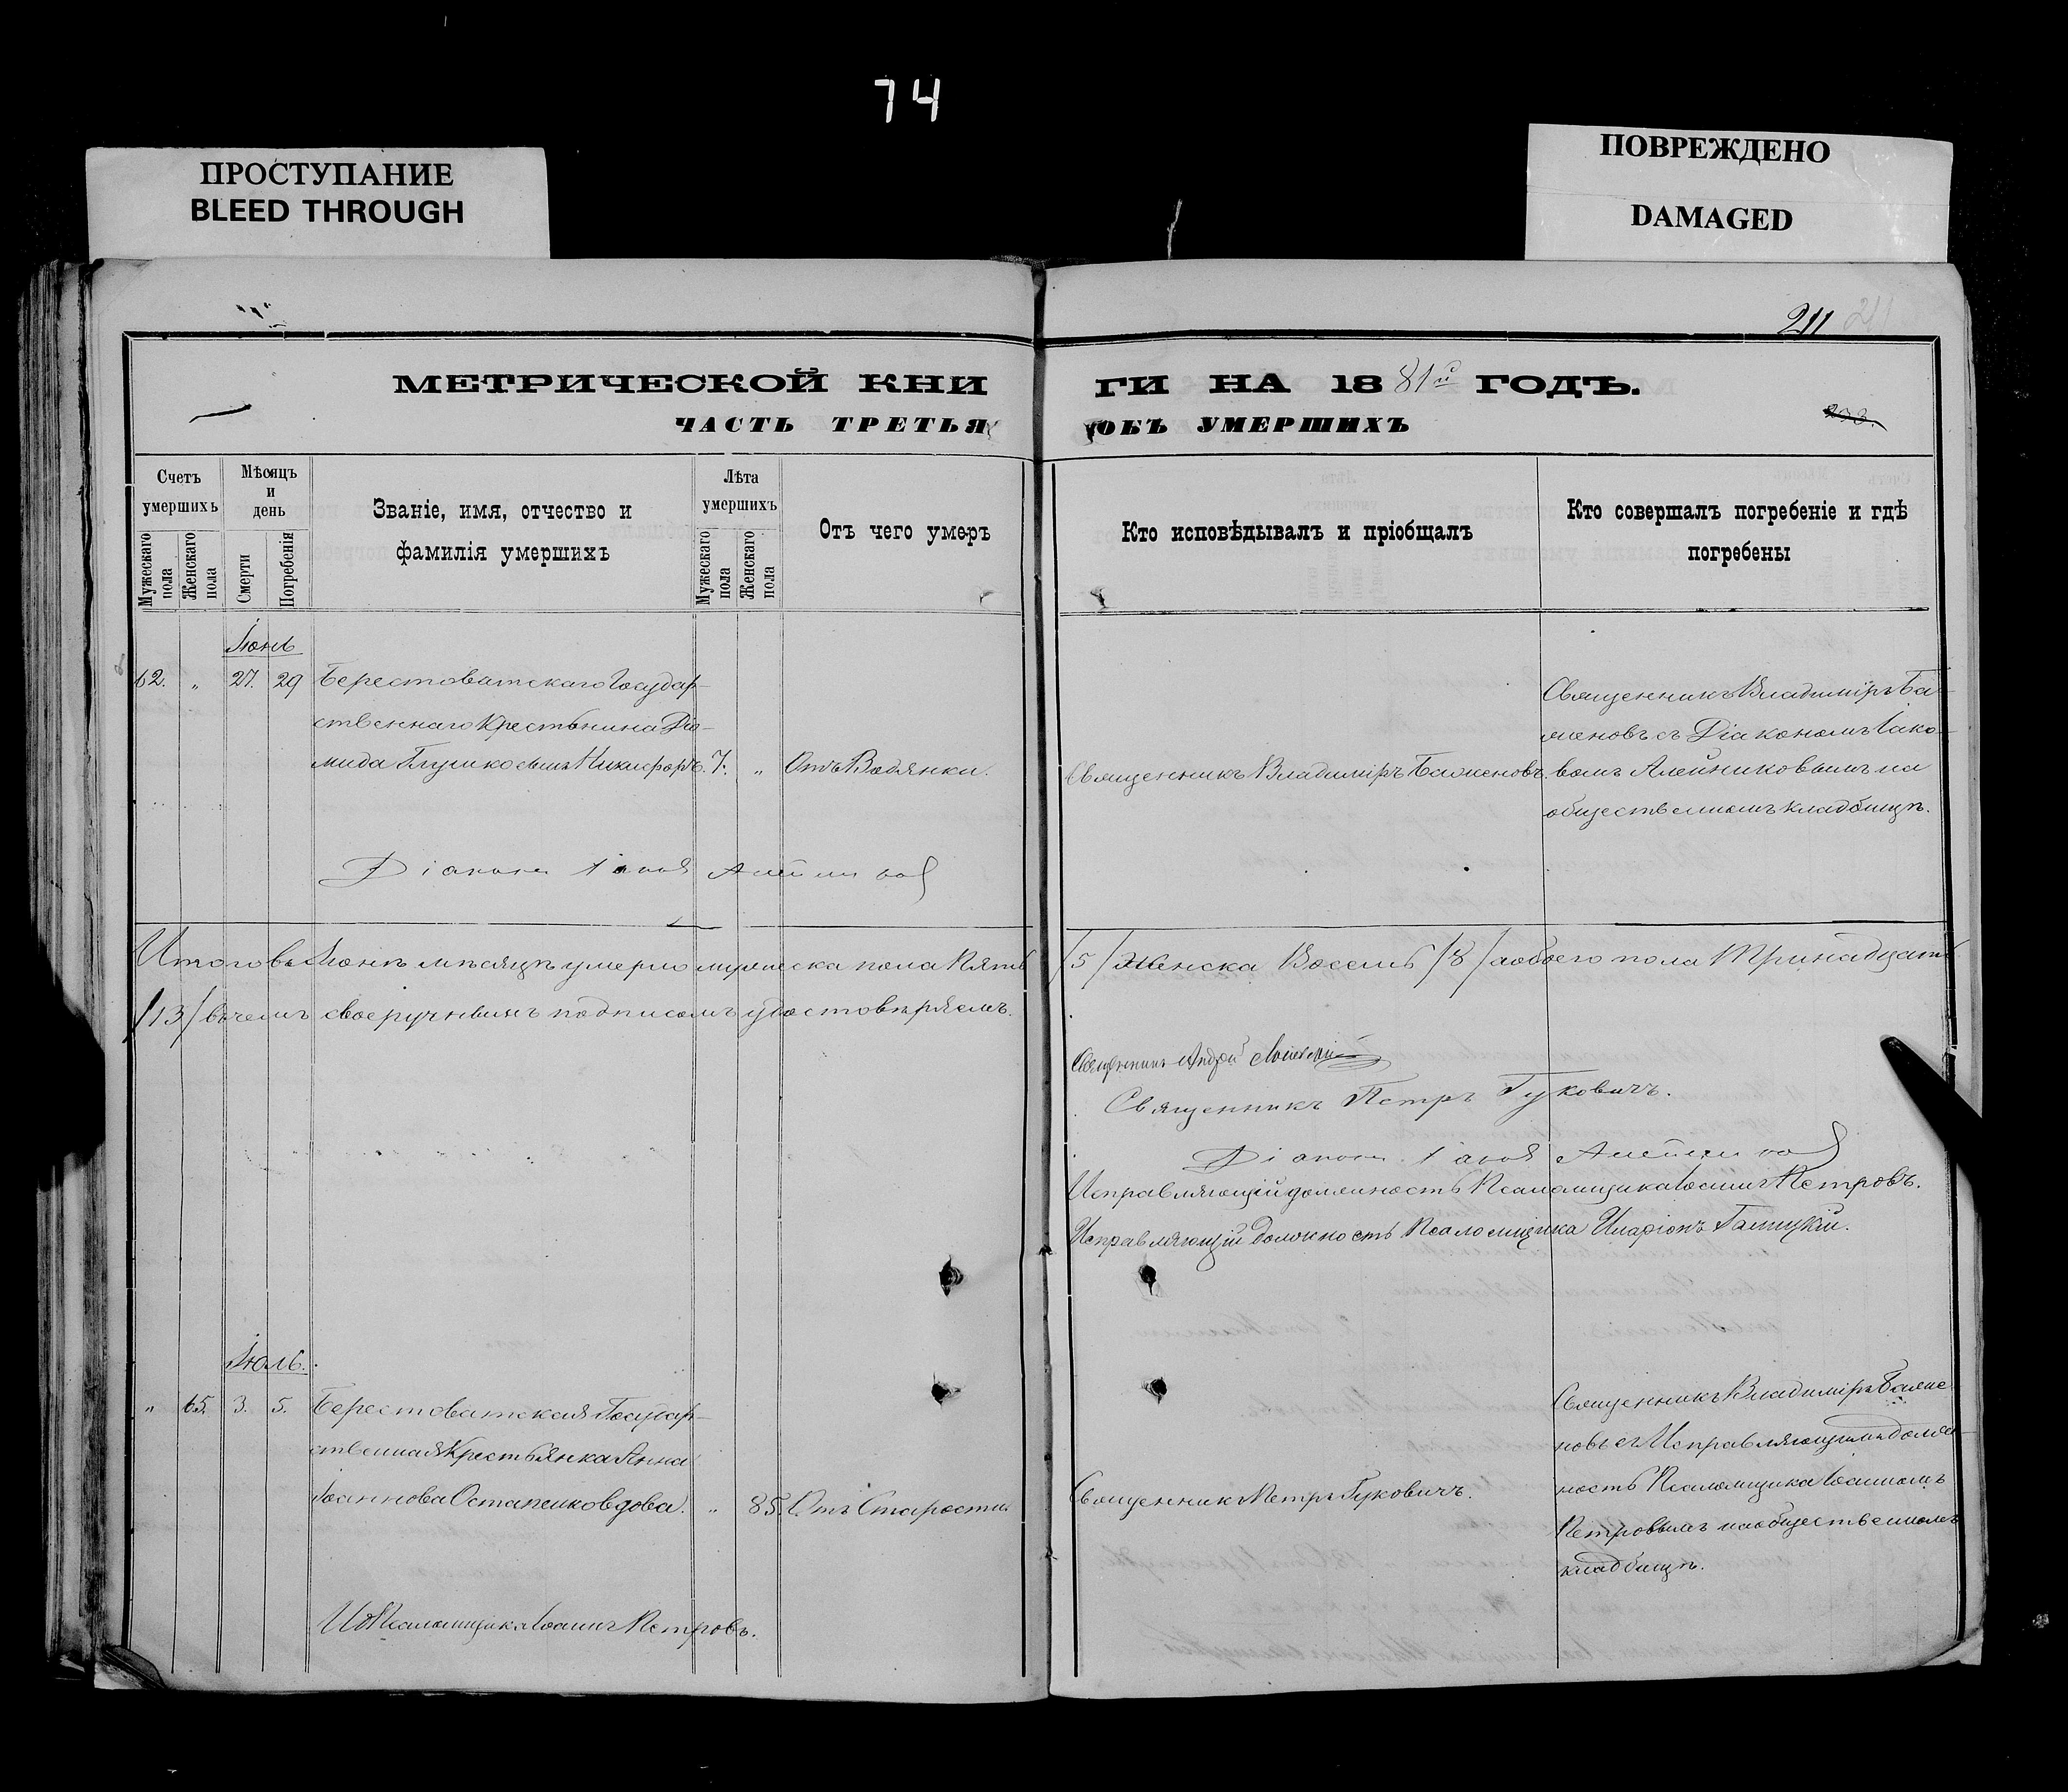 74
ПРОСТУПАНИЕ
BLEED THROUGH
ПОВРЕЖДЕНО
DAMAGED
211 211
МЕТРИЧЕСКОЙ КНИ
ГИ НА 1881й ГОДЪ.
ЧАСТЬ ТРЕТЬЯ
ОБЪ УМЕРШИХЪ
233.
Счетъ умершихъ
Мужескаго пола
Женскаго пола
Мѣсяцъ и день
Смерти
Погребенія
Званіе, имя, отчество и
фамилія умершихъ
Лѣта умершихъ
Мужескаго пола
Женскаго пола
Отъ чего умеръ
Кто исповѣдывалъ и пріобщалъ
Кто совершалъ погребеніе и гдѣ
погребены
Іюнь
62. „ 27. 29 Берестоватскаго Государ-
ственнаго Крестьянина Діо-
мида сынъ Никифоръ. 7. „ Отъ Водянки.
Священникъ Владиміръ Баженовъ.
Священникъ Владиміръ Ба-
женовъ съ Діакономъ Іако-
вомъ Алейниковымъ на
общественномъ кладбищѣ.
Діаконъ Іаковъ Алейниковъ
Итого въ Іюнѣ мѣсяцѣ умерло мужеска пола Пять
/5/ Женска Восемь /8/ а обоего пола Тринадцать
/13/ въ чемъ своеручнымъ подписомъ удостовѣряемъ.
Священникъ Андрей
Священникъ Петръ Гуковичъ.
Діаконъ Іаковъ Алейниковъ
Исправляющій должность Псаломщика Іоаннъ Петровъ.
Исправляющій должность Псаломщика Иларіонъ Галицкій.
Іюль.
„ 65. 3. 5. Берестоватская Государ-
ственная Крестьянка Анна
Іоаннова Остапенкова вдова. „ 85. Отъ Старости
Священникъ Петръ Гуковичъ.
Священникъ Владиміръ Баже-
новъ съ Исправляющимъ долж-
ность Псаломщика Іоанномъ
Петровымъ на общественномъ
кладбищѣ.
И. д. Псаломщика Іоаннъ Петровъ.